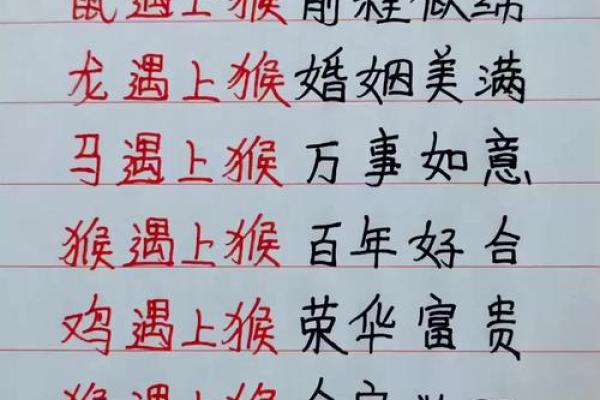 鼠遇上猴 前程似锦
龙遇上猴 婚姻美满
马遇上猴 万事如意
猴遇上猴 百年好合
鸡遇上猴 荣华富贵
遇上猴